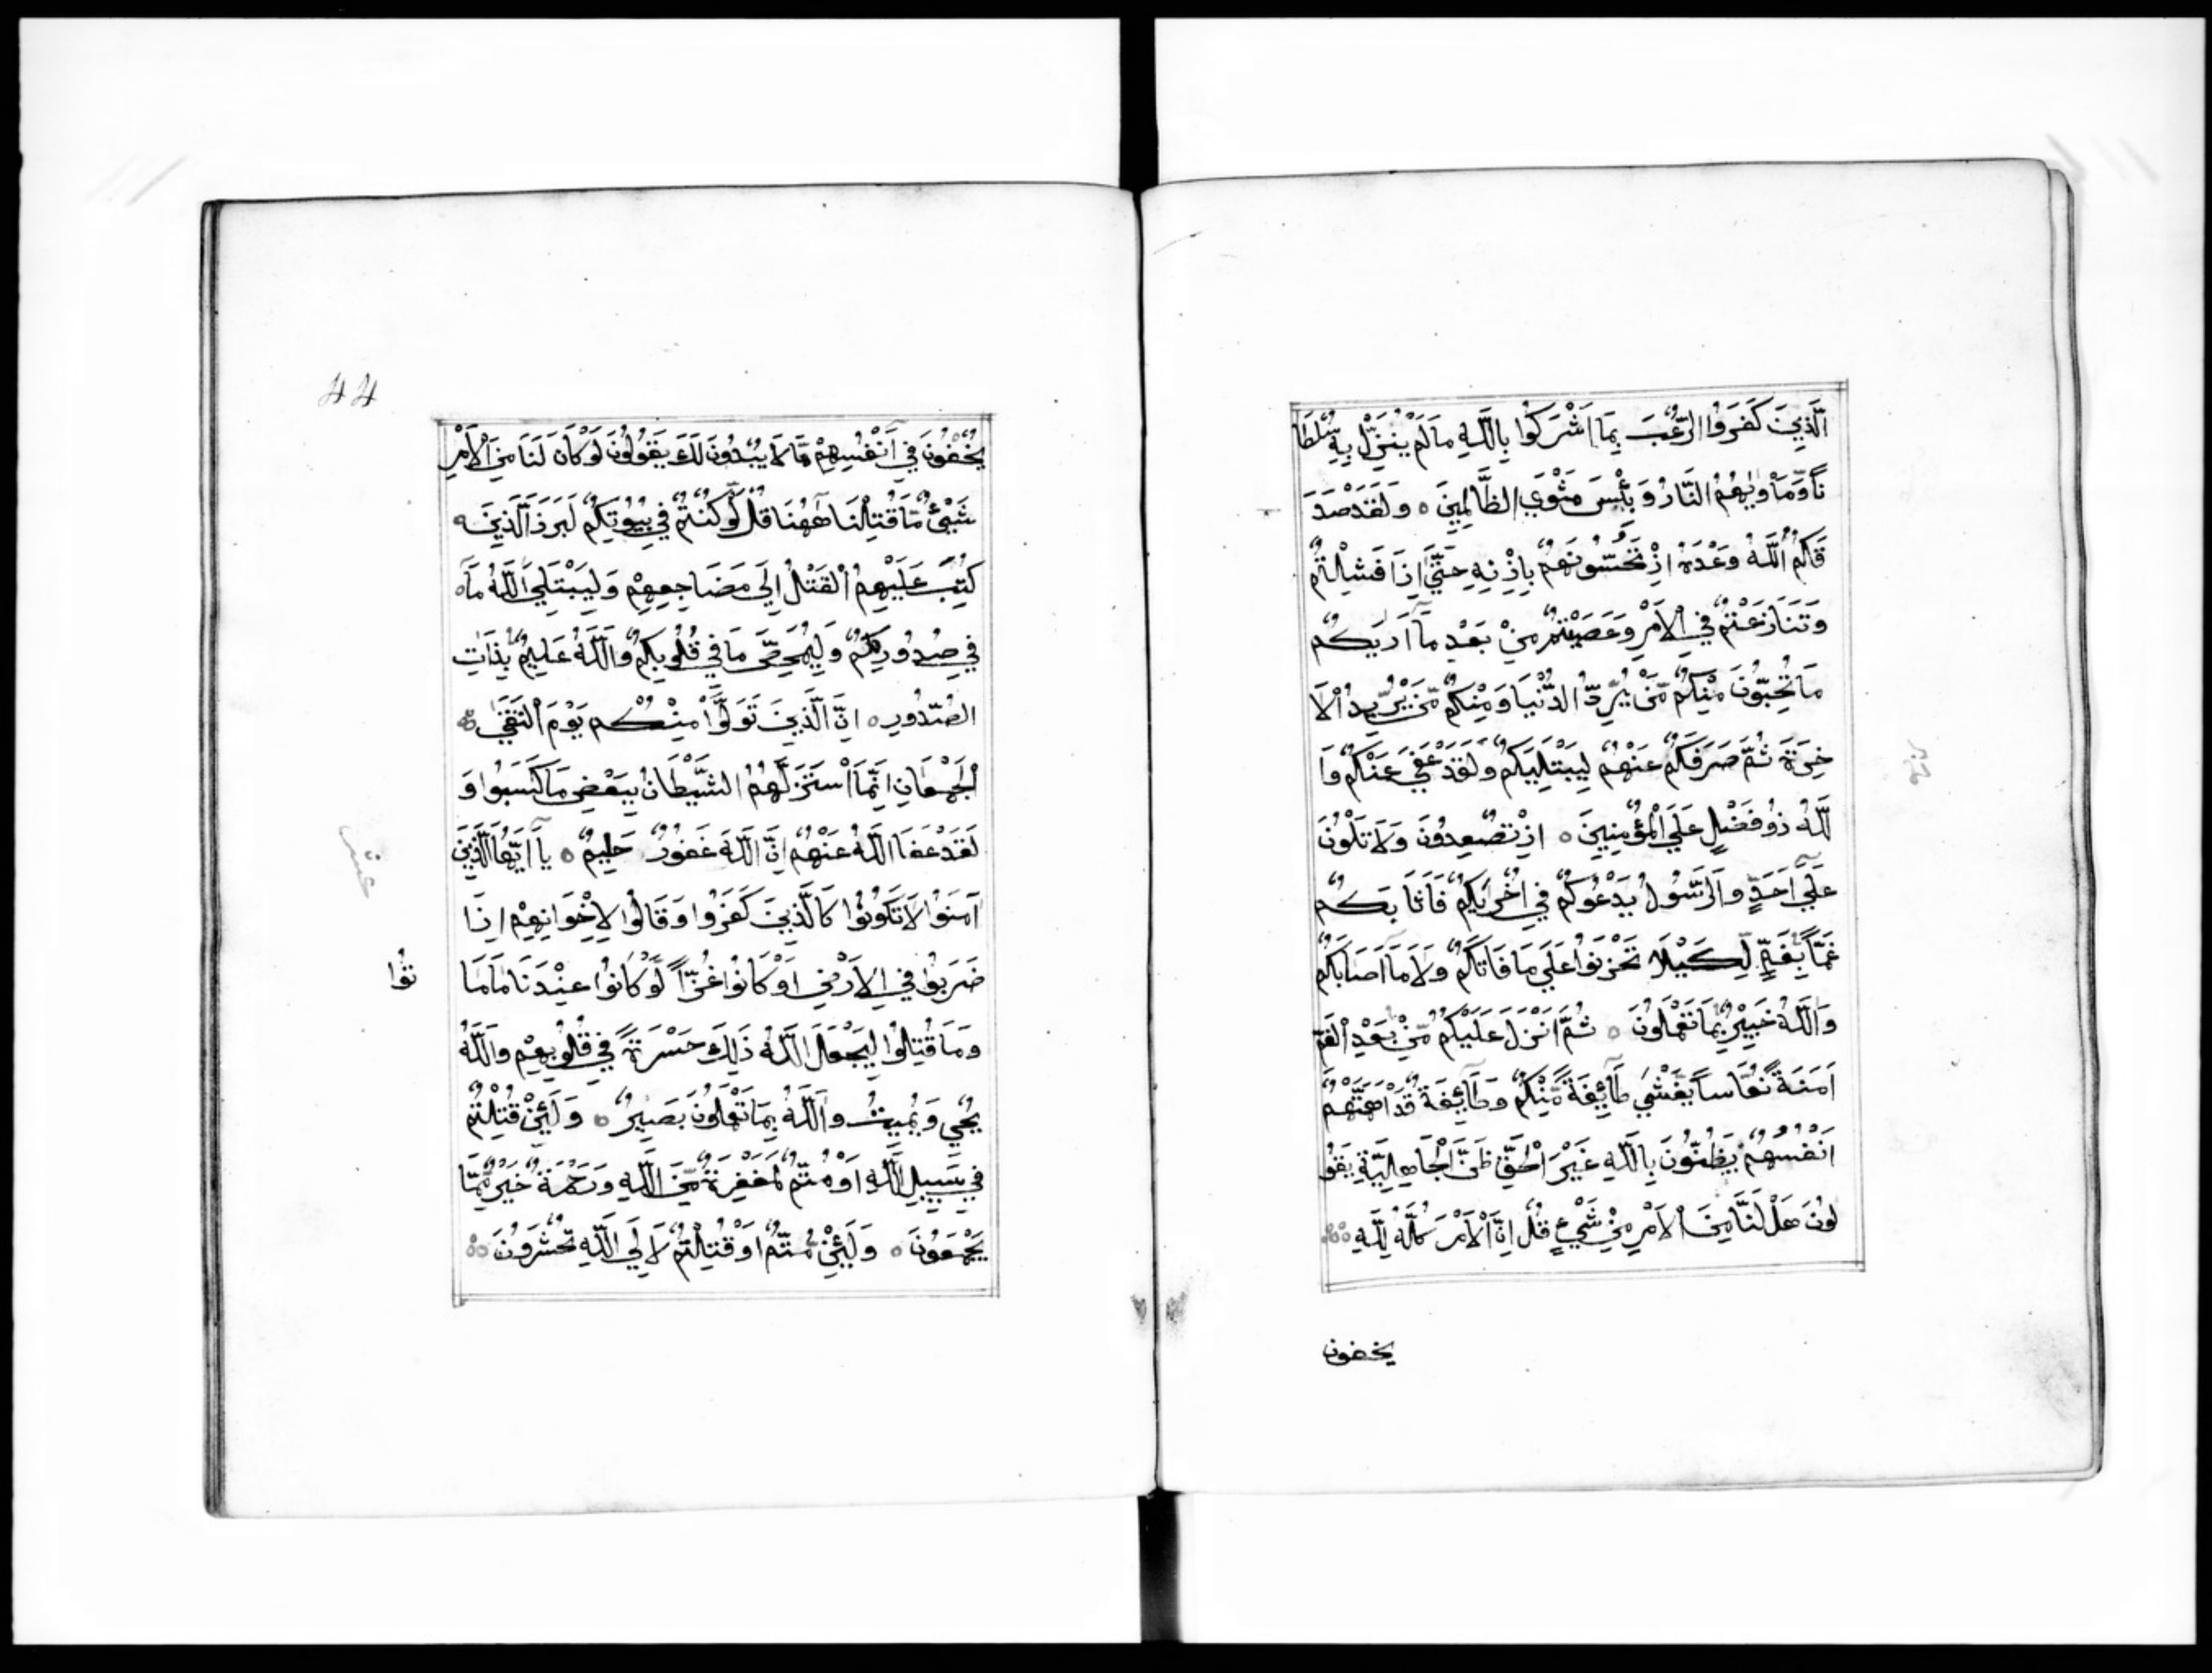 الَّذِينَ كَفَرُوا الرُّعْبَ بِمَا اَشْرَكُوا بِاللَّهِ مَا لَمْ يُنَزِّلْ بِهِ سُلْطَا
نًا وَّمَأْوٰيهُمُ النَّارُ وَبِئْسَ مَثْوَى الظَّالِمِينَ ه وَلَقَدْ صَدَ
قَكُمُ اللَّهُ وَعْدَهُ اِذْ تَحُسُّونَهُمْ بِاِذْنِهِ حَتَّىٰ اِذَا فَشِلْتُمْ
وَتَنَازَعْتُمْ فِي الْاَمْرِ وَعَصَيْتُمْ مِنْ بَعْدِ مَا اَرٰيكُمْ
مَا تُحِبُّونَ مِنْكُمْ مَّنْ يُّرِدُ الدُّنْيَا وَمِنْكُمْ مَّنْ يُّرِيدُ الْاَ
خِرَةَ ثُمَّ صَرَفَكُمْ عَنْهُمْ لِيَبْتَلِيَكُمْ وَلَقَدْ عَفَىٰ عَنْكُمْ وَا
للَّهُ ذُو فَضْلٍ عَلَى الْمُؤْمِنِينَ ه اِذْ تُصْعِدُونَ وَلَا تَلْوُنَ
عَلَىٰ اَحَدٍ وَالرَّسُولُ يَدْعُوكُمْ فِي اُخْرٰيكُمْ فَاَثَابَكُمْ
غَمًّا بِغَمٍّ لِّكَيْلَا تَحْزَنُوا عَلَىٰ مَا فَاتَكُمْ وَلَا مَا اَصَابَكُمْ
وَاللَّهُ خَبِيرٌ بِمَا تَعْمَلُونَ ه ثُمَّ اَنْزَلَ عَلَيْكُمْ مِّنْ بَعْدِ الْغَمِّ
اَمَنَةً نُّعَاسًا يَّغْشَىٰ طَآئِفَةً مِّنْكُمْ وَطَآئِفَةٌ قَدْ اَهَمَّتْهُمْ
اَنْفُسُهُمْ يَظُنُّونَ بِاللَّهِ غَيْرَ الْحَقِّ ظَنَّ الْجَاهِلِيَّةِ يَقُو
لُونَ هَلْ لَنَا مِنَ الْاَمْرِ مِنْ شَيْءٍ قُلْ اِنَّ الْاَمْرَ كُلَّهُ لِلَّهِ
يخفون
44
يُخْفُونَ فِي اَنْفُسِهِمْ مَّا لَا يُبْدُونَ لَكَ يَقُولُونَ لَوْ كَانَ لَنَا مِنَ الْاَمْرِ
شَيْئٌ مَّا قُتِلْنَا هٰهُنَا قُلْ لَّوْ كُنْتُمْ فِي بُيُوتِكُمْ لَبَرَزَ الَّذِينَ ه
كُتِبَ عَلَيْهِمُ الْقَتْلُ اِلَىٰ مَضَاجِعِهِمْ وَلِيَبْتَلِيَ اللَّهُ مَا ه
فِي صُدُورِكُمْ وَلِيُمَحِّصَ مَا فِي قُلُوبِكُمْ وَاللَّهُ عَلِيمٌ بِذَاتِ
الصُّدُورِ ه اِنَّ الَّذِينَ تَوَلَّوْا مِنْكُمْ يَوْمَ الْتَقَىٰ
الْجَمْعَانِ اِنَّمَا اسْتَزَلَّهُمُ الشَّيْطَانُ بِبَعْضِ مَا كَسَبُوا وَ
لَقَدْ عَفَا اللَّهُ عَنْهُمْ اِنَّ اللَّهَ غَفُورٌ حَلِيمٌ ه يَا اَيُّهَا الَّذِينَ
آمَنُوا لَا تَكُونُوا كَالَّذِينَ كَفَرُوا وَقَالُوا لِاِخْوَانِهِمْ اِذَا
ضَرَبُوا فِي الْاَرْضِ اَوْ كَانُوا غُزًّا لَّوْ كَانُوا عِنْدَنَا مَا مَا
تُوا
وَمَا قُتِلُوا لِيَجْعَلَ اللَّهُ ذٰلِكَ حَسْرَةً فِي قُلُوبِهِمْ وَاللَّهُ
يُحْيِي وَيُمِيتُ وَاللَّهُ بِمَا تَعْمَلُونَ بَصِيرٌ ه وَلَئِنْ قُتِلْتُمْ
فِي سَبِيلِ اللَّهِ اَوْ مُتُّمْ لَمَغْفِرَةٌ مِّنَ اللَّهِ وَرَحْمَةٌ خَيْرٌ مِّمَّا
يَجْمَعُونَ ه وَلَئِنْ مُّتُّمْ اَوْ قُتِلْتُمْ لَاِلَى اللَّهِ تُحْشَرُونَ